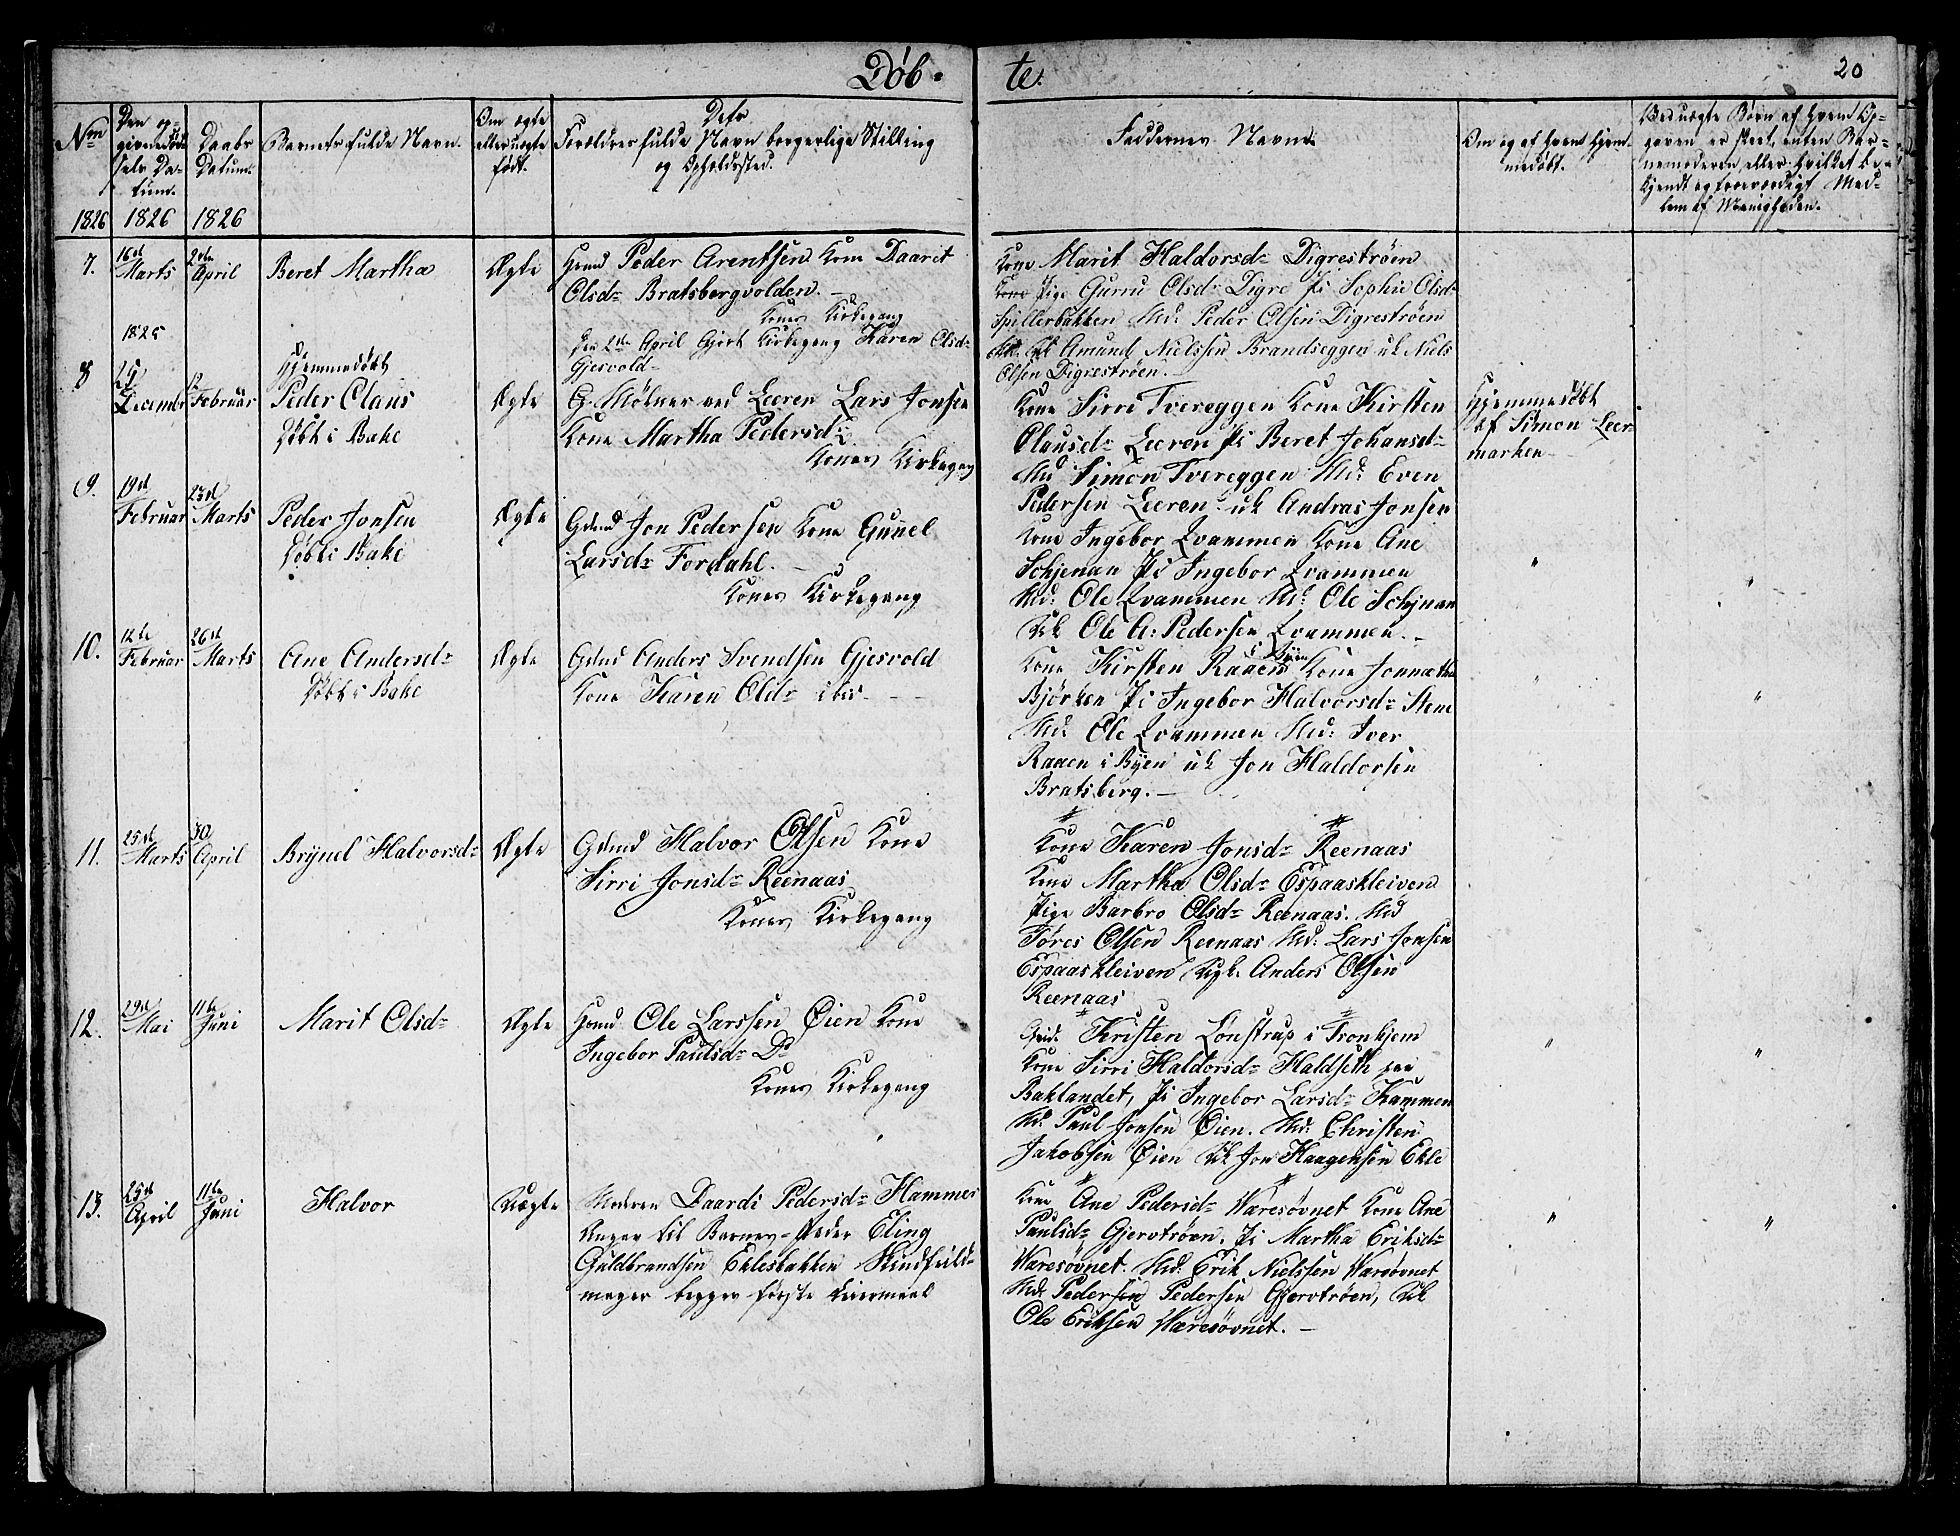 Døb-
te.
20
Nm
Den op-
givne Føde
sels Da-
tum.
Daabs
Datum.
Barnets fulde Navn.
Om ægte
eller uægte
født.
Dets
Forældres fulde Navn borgerlige Stilling
og Opholdssted.
Faddernes Navne
Om og af hvem hjem-
medøbt.
Ved uægte Børn af hvem Op-
gaven er skeet, enten Bar-
nemoderen eller hvilket be-
kjendt og troeværdigt Med-
lem af Menigheden.
1826 1826 1826
7.
16de
Marts
2den
April
Beret Martha
Ægte
Hmd Peder Arentsen Kone Daarit
Olsd- Bratsbergvolden.
Kones Kirkegang
Den 2den April Gjort Kirkegang Karen Olsd-
Gjesvold-
Kone Marit Haldorsd- Digrestrøen
Kone Pige Gurru Olsd- Digre Pi Sophie Olsd-
Spillerbakken Md: Peder Olsen Digrestrøen
Md. Uk Amund Nielssen Brandseggen uk Niels
Olsen Digrestrøen.
1825
8
25
Decembr
12
Februar
Hjemmedøbt
Peder Claus
Døbt i Bake
Ægte
G. Mølner ved Leeren Lars Jonsen
Kone Martha Pedersd-
Kones Kirkegang
Kone Sirri Tvereggen Kone Kirsten
Clausd- Leeren Pi Beret Johansd-
Md Simon Tvereggen Md. Even
Pedersen Leeren uk Andras Jonsen
Hjemmedøbt
af Simon Leer-
marken
9.
19de
Februar
23de
Marts
Peder Jonsen
Døbt i Bake
Ægte
Gdmd Jon Pedersen Kone Gunnel
Larsd- Fordahl.
Kones Kirkegang
Kone Ingebor Qvammen Kone Ane
Schjenan Pi Ingebor Qvammen
Md: Ole Qvammen Md: Ole Schjnan
Uk Ole A: Pedersen Qvammen.
10.
12te
Februar
26de
Marts
Ane Andersd-
Døbt i Bake
Ægte
Gdmd Anders Svendsen Gjesvold
Kone Karen Olsd- ibid
Kone Kirsten Raaen i Byen Kone Jonnatha
Bjørken Pi Ingebor Halvorsd- Stene
Md: Ole Qvammen Md: Iver
Raaen i Byen uk Jon Haldorsen
Bratsberg.
11.
25de
Marts
30
April
Brynel Halvorsd-
Ægte
Gdmd Halvor Olsen Kone
Sirri Jonsd- Reenaas
Kones Kirkegang
Kone Karen Jonsd- Reenaas
Kone Martha Olsd- Espaaskleiven
Pige Barbro Olsd- Reenaas. Md
Tøres Olsen Reenaas Md: Lars Jonsen
Espaaskleiven Ugk. Anders Olsen
Reenaas
12.
29de
Mai
11te
Juni
Marit Olsd-
Ægte
Hmd Ole Larssen Øien Kone
Ingebor Paulsd- Do
Kones Kirkegang
Kristen Lønstrup i Tronhjem
Kone Sirri Haldorsd- Haldseth paa
Baklandet, Pi Ingebor Larsd- Kammen
Md: Paul Jonsen Øien. Md: Christen
Jakobsen Øien Uk Jon Haagensen Ekle
13.
25de
April
11te
Juni
Halvor
Uægte
Moderen Daardi Pedersd- Hammer
Angav til Barnets-Fader Eling
Guldbrandsen Eklesbakken
mager begges første Leiermaal
Kone Ane Pedersd- Waresøvnet Kone Ane
Paulsd- Gjervtrøen. Pi Martha Eriksd-
Waresøvnet. Md: Erik Nielssen Warsøvnet
Md: Pedersen Pedersen Gjervtrøen, Uk
Ole Eriksen Waresøvnet.